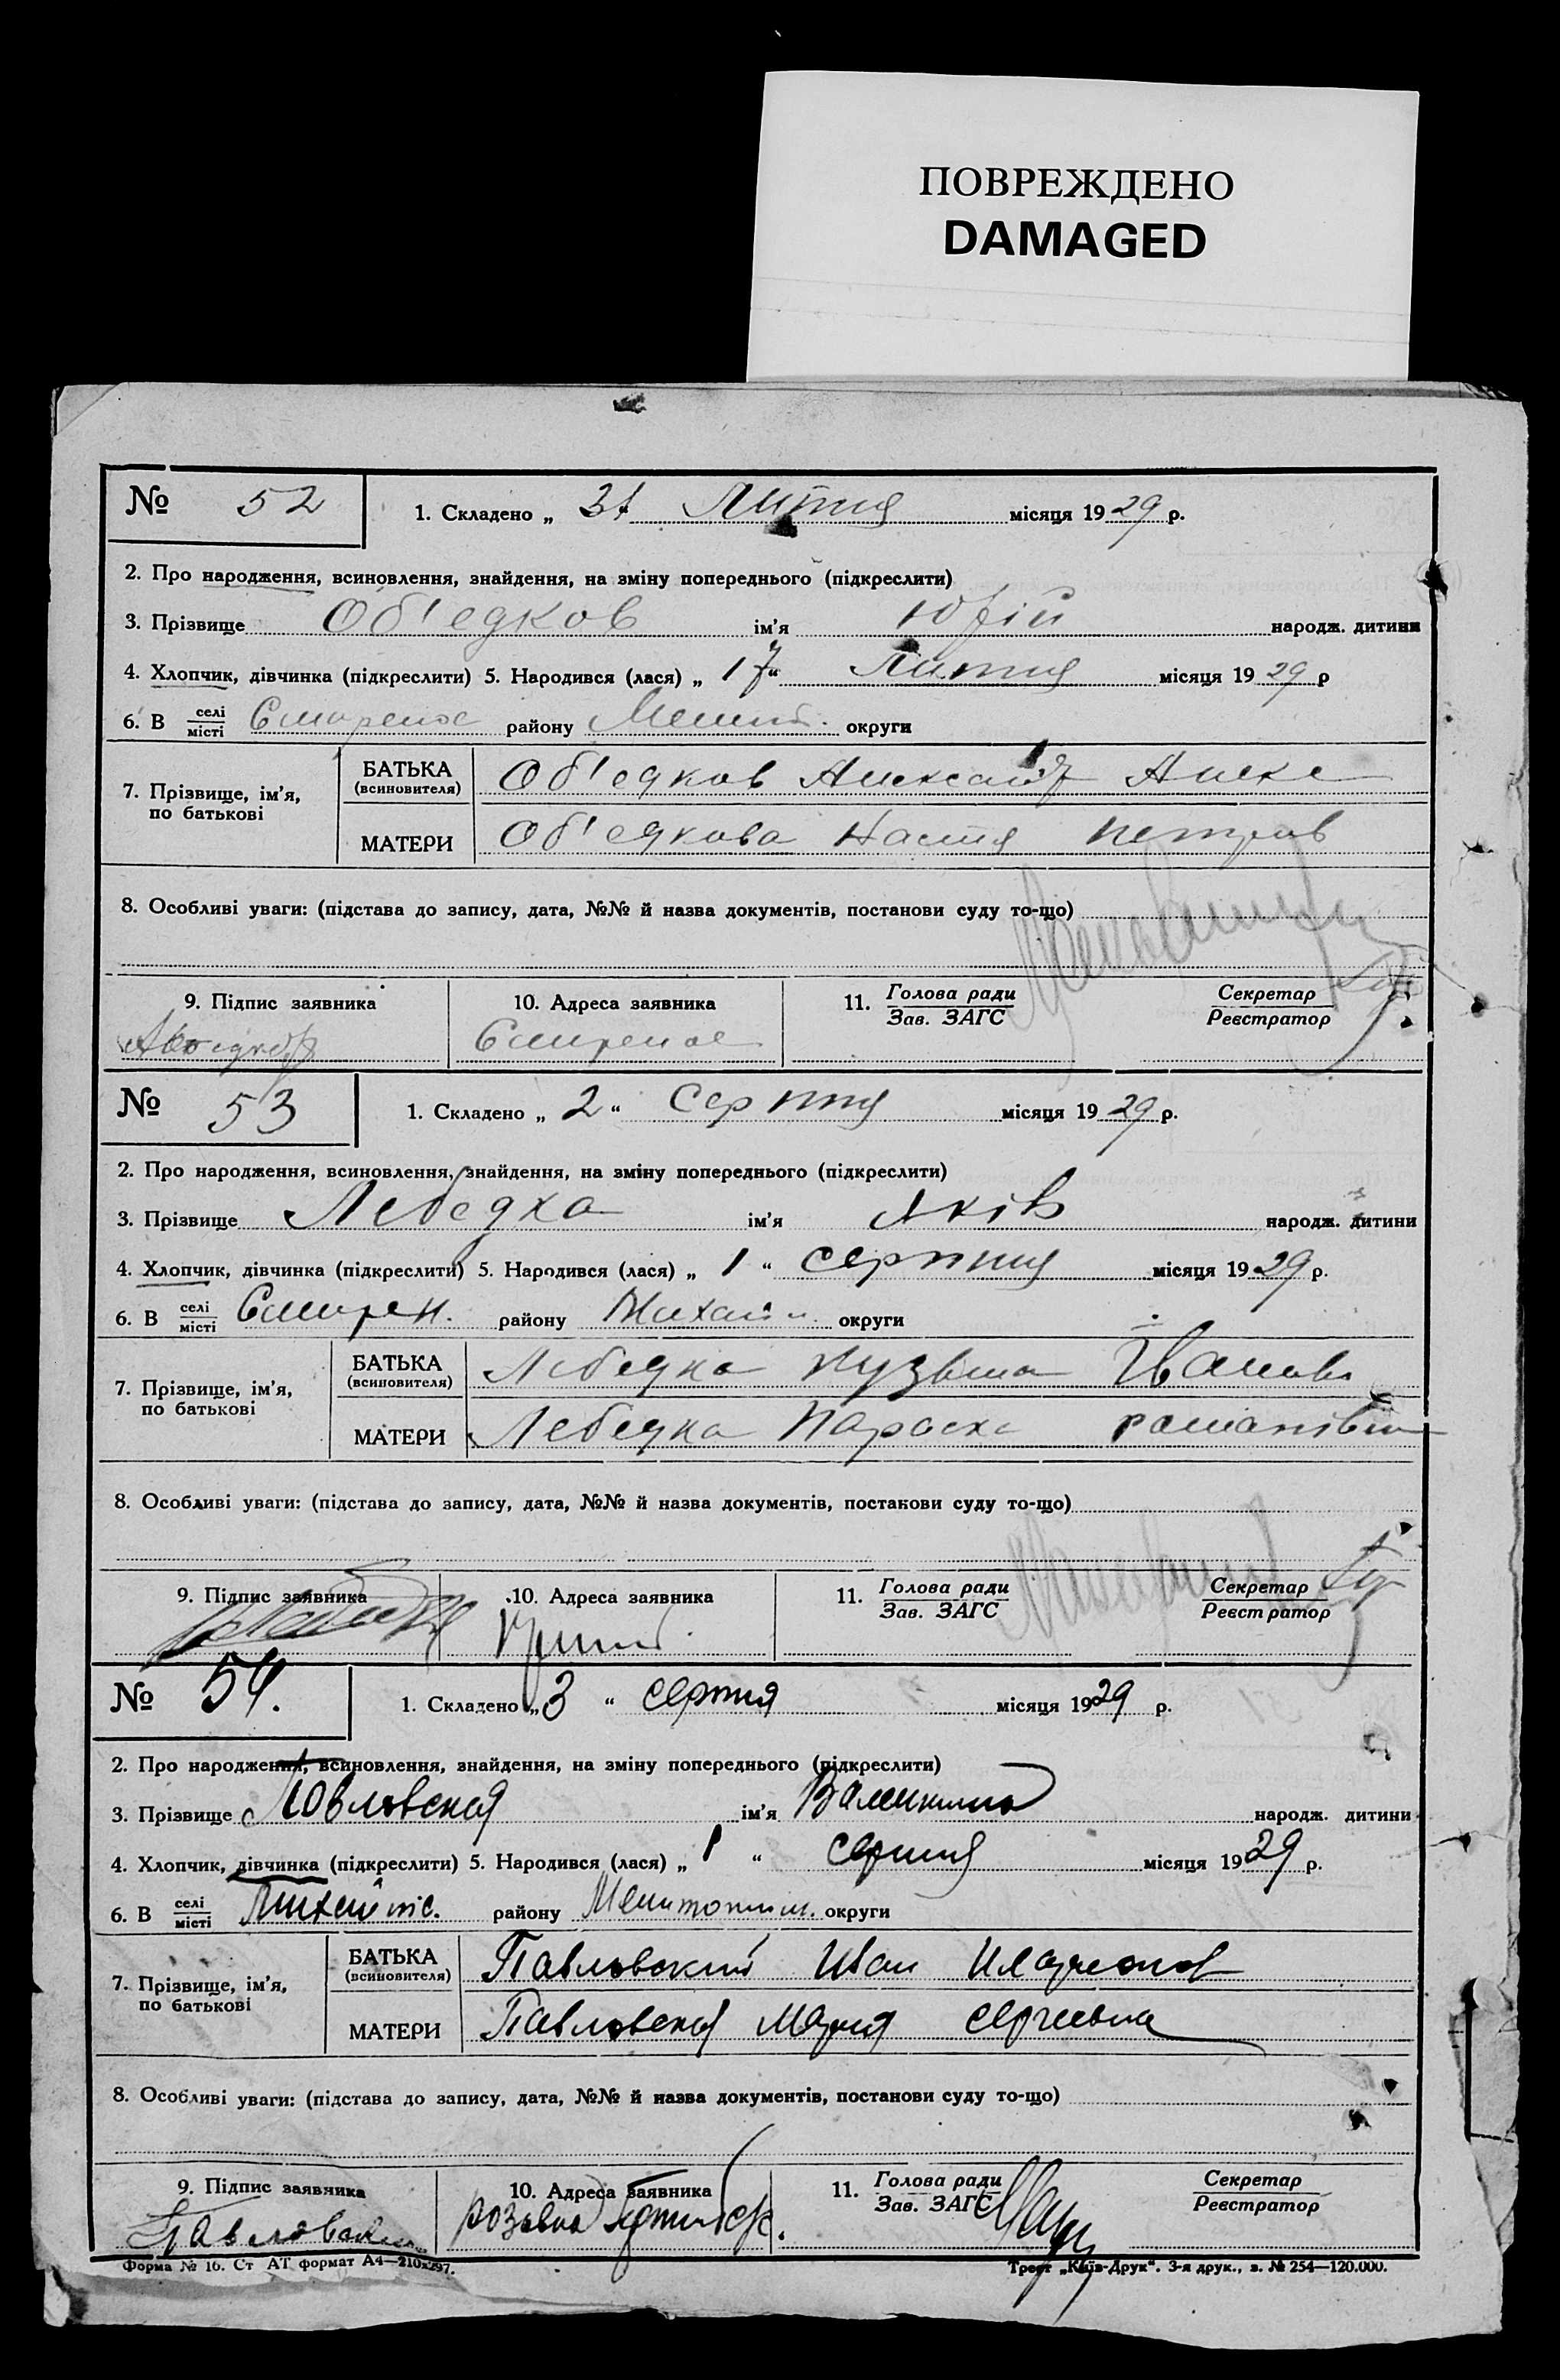 ПОВРЕЖДЕНО
DAMAGED
№ 52 1. Складено „ 31 Липня місяця 1929 р.
2. Про народження, всиновлення, знайдення, на зміну попереднього (підкреслити)
3. Прізвище Об'єдков ім'я Юрій народж. дитини
4. Хлопчик, дівчинка (підкреслити) 5. Народився (лася) „ 17 “ Липня місяця 1929 р
6. В селі місті району округи
7. Прізвище, ім'я, по батькові
БАТЬКА (всиновителя) Об'єдков
МАТЕРИ Об'єдкова Настя Петров
8. Особливі уваги: (підстава до запису, дата, №№ й назва документів, постанови суду то-що)
9. Підпис заявника 10. Адреса заявника 11. Голова ради Зав. ЗАГС Секретар Реєстратор
№ 53 1. Складено „ 2 “ Серпня місяця 1929 р.
2. Про народження, всиновлення, знайдення, на зміну попереднього (підкреслити)
3. Прізвище Лебедка ім'я Яків народж. дитини
4. Хлопчик, дівчинка (підкреслити) 5. Народився (лася) „ 1 “ серпня місяця 1929 р.
6. В селі місті району округи
7. Прізвище, ім'я, по батькові
БАТЬКА (всиновителя) Лебедка Кузьма Іванов
МАТЕРИ Лебедка Параска романівна
8. Особливі уваги: (підстава до запису, дата, №№ й назва документів, постанови суду то-що)
9. Підпис заявника 10. Адреса заявника 11. Голова ради Зав. ЗАГС Секретар Реєстратор
№ 54. 1. Складено „ 3 “ серпня місяця 1929 р.
2. Про народження, всиновлення, знайдення, на зміну попереднього (підкреслити)
3. Прізвище Повловская ім'я народж. дитини
4. Хлопчик, дівчинка (підкреслити) 5. Народився (лася) „ 1 “ серпня місяця 1929 р.
6. В селі місті району округи
7. Прізвище, ім'я, по батькові
БАТЬКА (всиновителя) Павловский Иван
МАТЕРИ Павловская Мария Сергеевна
8. Особливі уваги: (підстава до запису, дата, №№ й назва документів, постанови суду то-що)
9. Підпис заявника 10. Адреса заявника 11. Голова ради Зав. ЗАГС Секретар Реєстратор
Форма № 16. Ст АТ формат А4—210х297.
Трест „Київ-Друк“. 3-я друк., з. № 254—120.000.